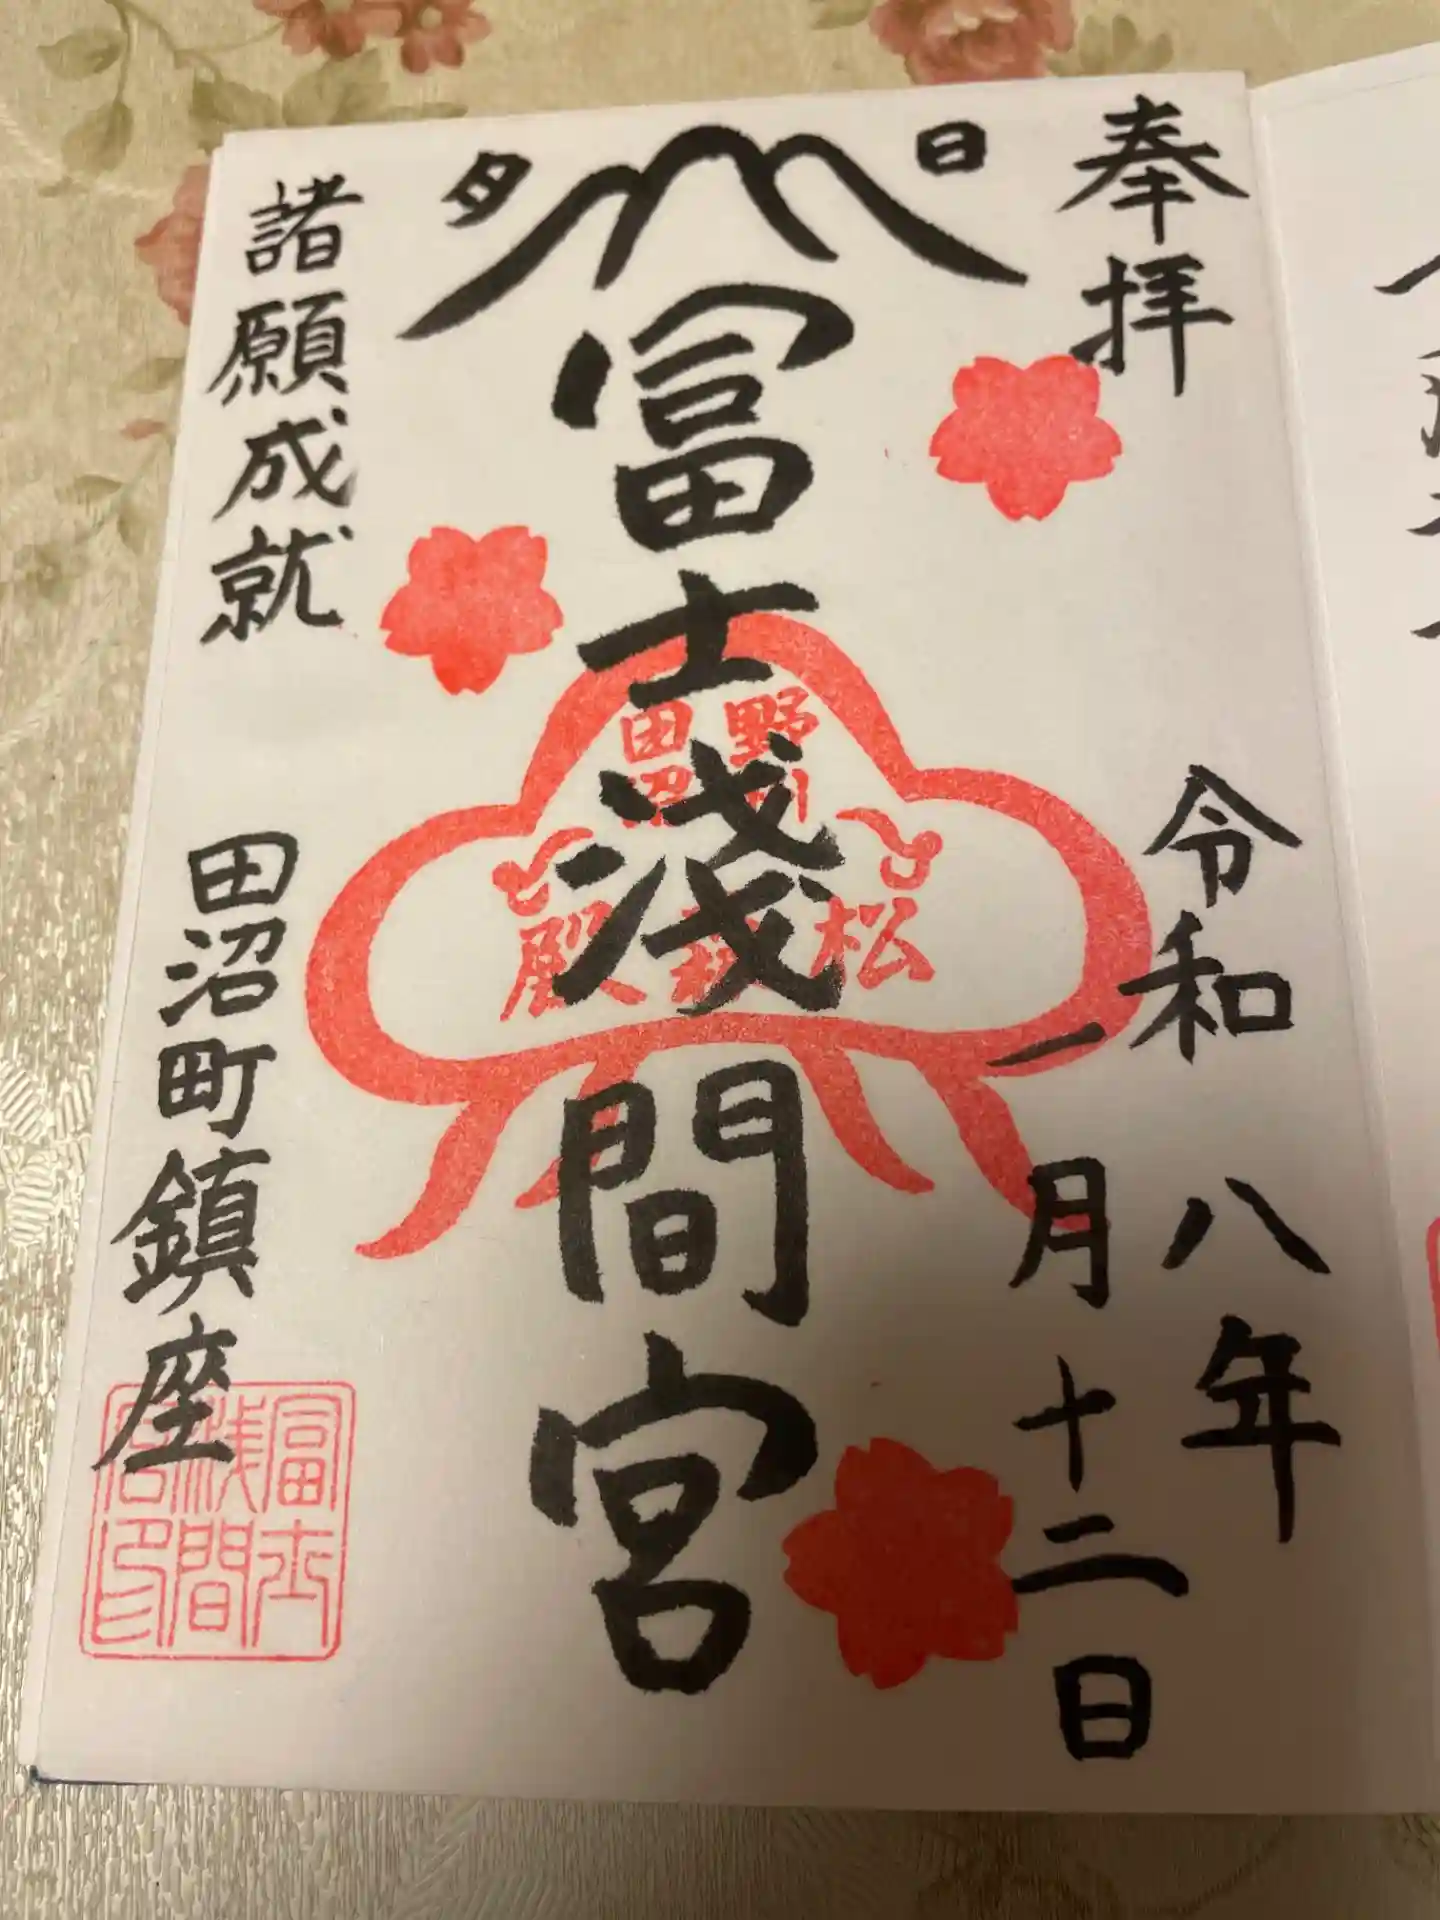 奉拝
令和八年
一月十二日
日
冨士浅間宮
諸願成就
田沼町鎮座
野州
田沼
松森殿
冨士
浅間
宮印